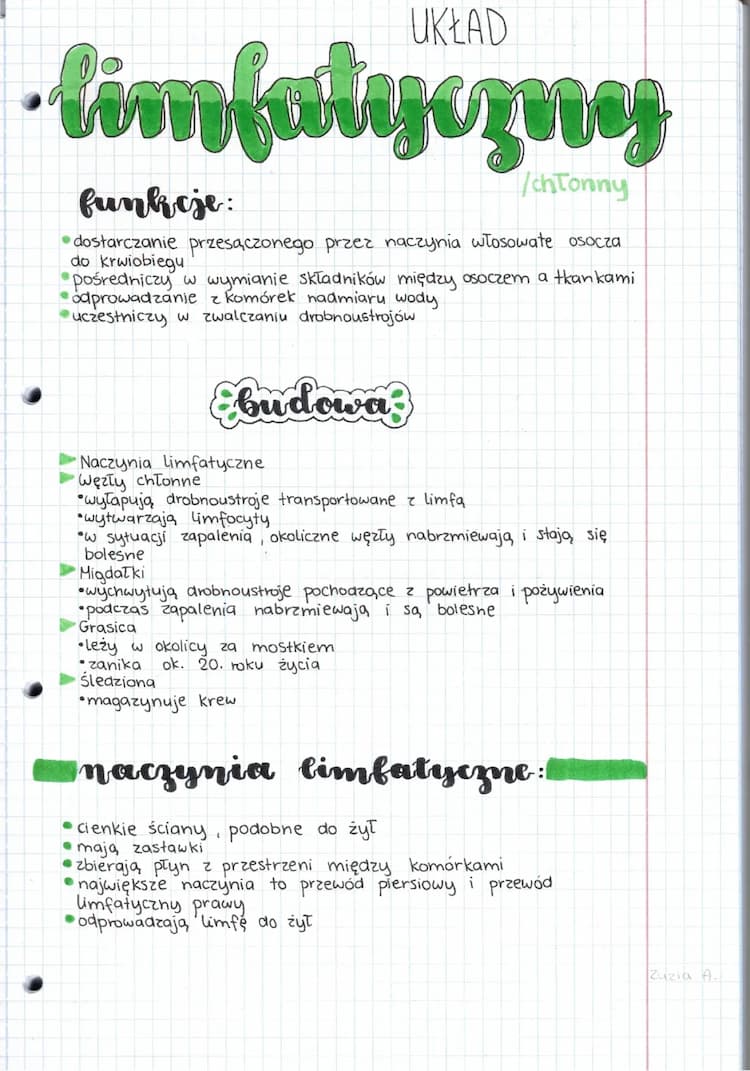 UKŁAD
limfatyczny
/chłonny
funkcje:
•dostarczanie przesączonego przez naczynia włosowate osocza
do krwiobiegu
•pośredniczy w wymianie składników między osoczem a tkankami
•odprowadzanie z komórek nadmiaru wody
•uczestniczy w zwalczaniu drobnoustrojów
budowa
▶Naczynia limfatyczne
▶Węzły chłonne
•wyłapują drobnoustroje transportowane z limfą
•wytwarzają limfocyty
•w sytuacji zapalenia, okoliczne węzły nabrzmiewają i stają się
bolesne
▶Migdałki
•wychwytują drobnoustroje pochodzące z powietrza i pożywienia
•podczas zapalenia nabrzmiewają i są bolesne
▶Grasica
•leży w okolicy za mostkiem
•zanika ok. 20. roku życia
▶śledziona
•magazynuje krew
naczynia limfatyczne:
•cienkie ściany, podobne do żył
•mają zastawki
•zbierają płyn z przestrzeni między komórkami
•największe naczynia to przewód piersiowy i przewód
limfatyczny prawy
•odprowadzają limfę do żył
Zuzia A.